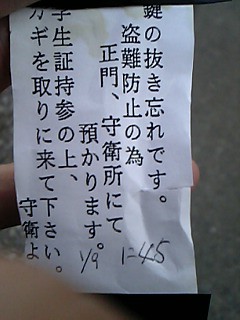 鍵の抜き忘れです。
盗難防止の為
正門、守衛所にて
預かります。1/9 1:45
学生証持参の上、
カギを取りに来て下さい。
守衛よ